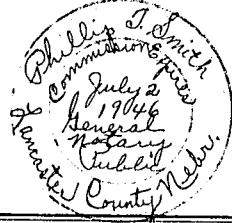 Phillip T. Smith
Commission Expires
July 2
1946
General
Notary
Public
Lancaster County Nebr.